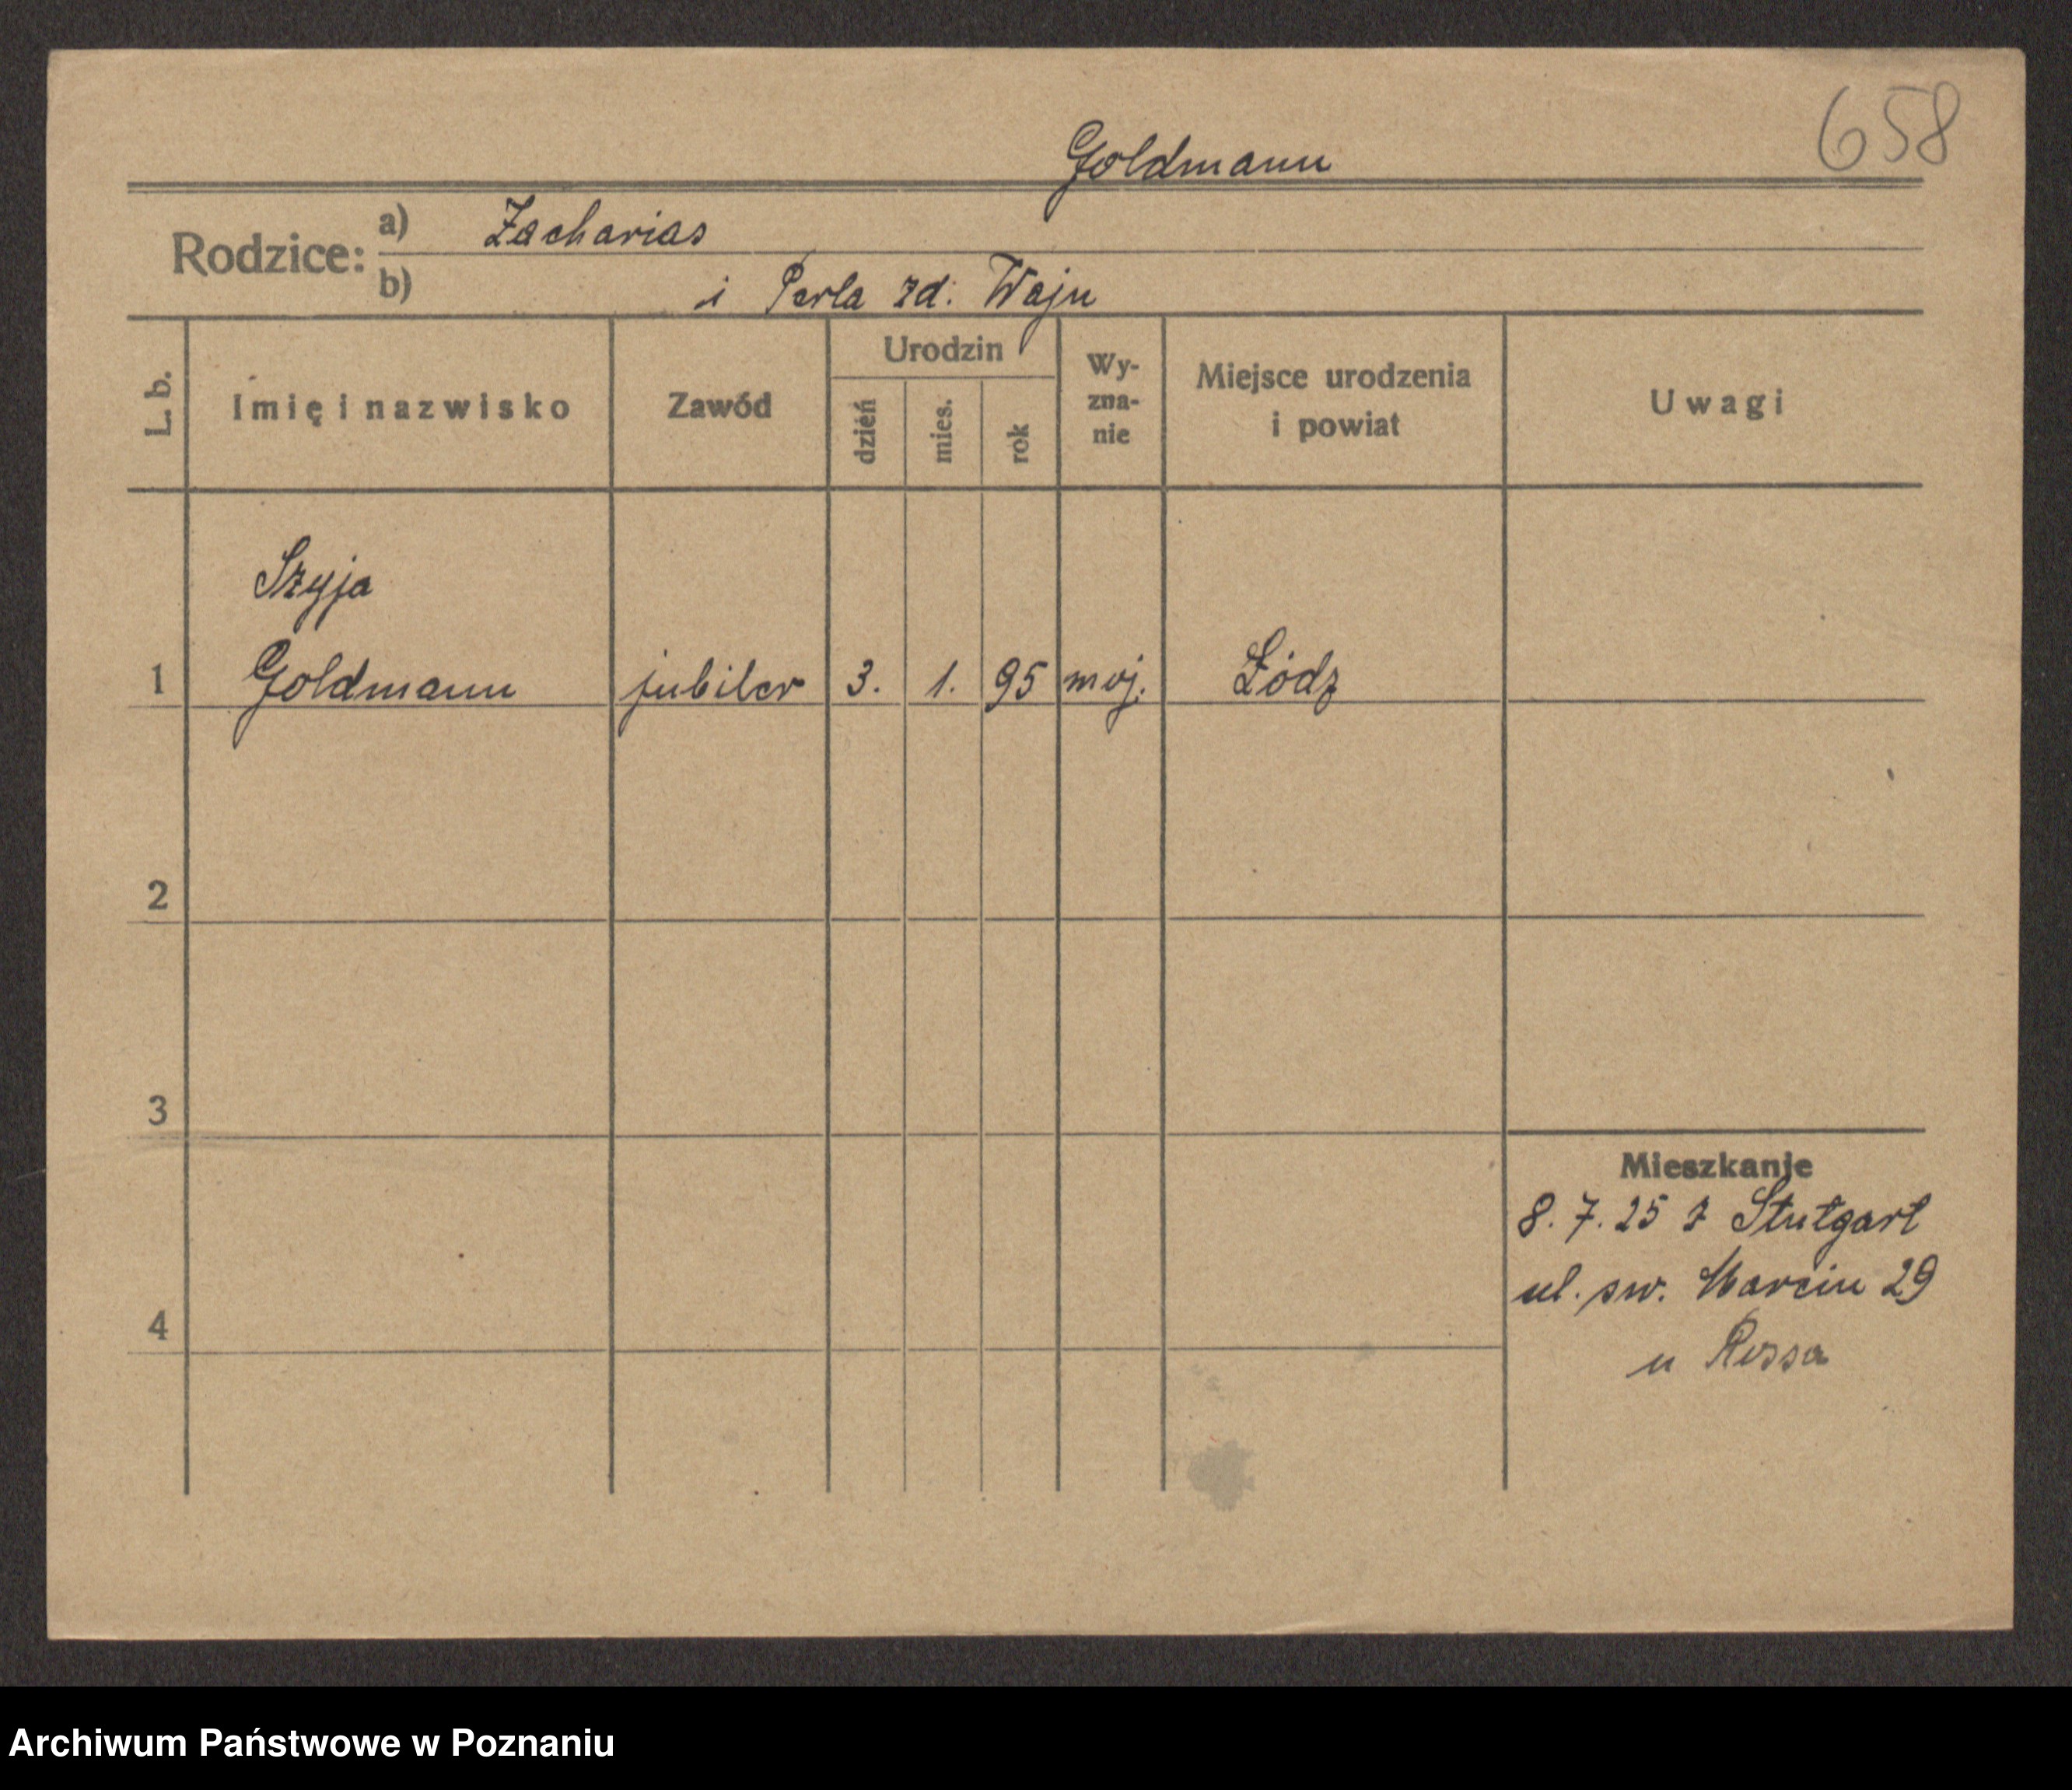 658
Goldmann
Rodzice:
a) Zacharias
b) i Perla zd. Wajn
L. b.
Imię i nazwisko
Zawód
Urodzin
dzień
mies.
rok
Wy-
zna-
nie
Miejsce urodzenia
i powiat
Uwagi
Szyja
1 Goldmann jubiler 3. 1. 95 moj. Łódz
2
3
4
Mieszkanie
8. 7. 25 z Stutgart
ul. sw. Marcin 29
u Rossa
Archiwum Państwowe w Poznaniu